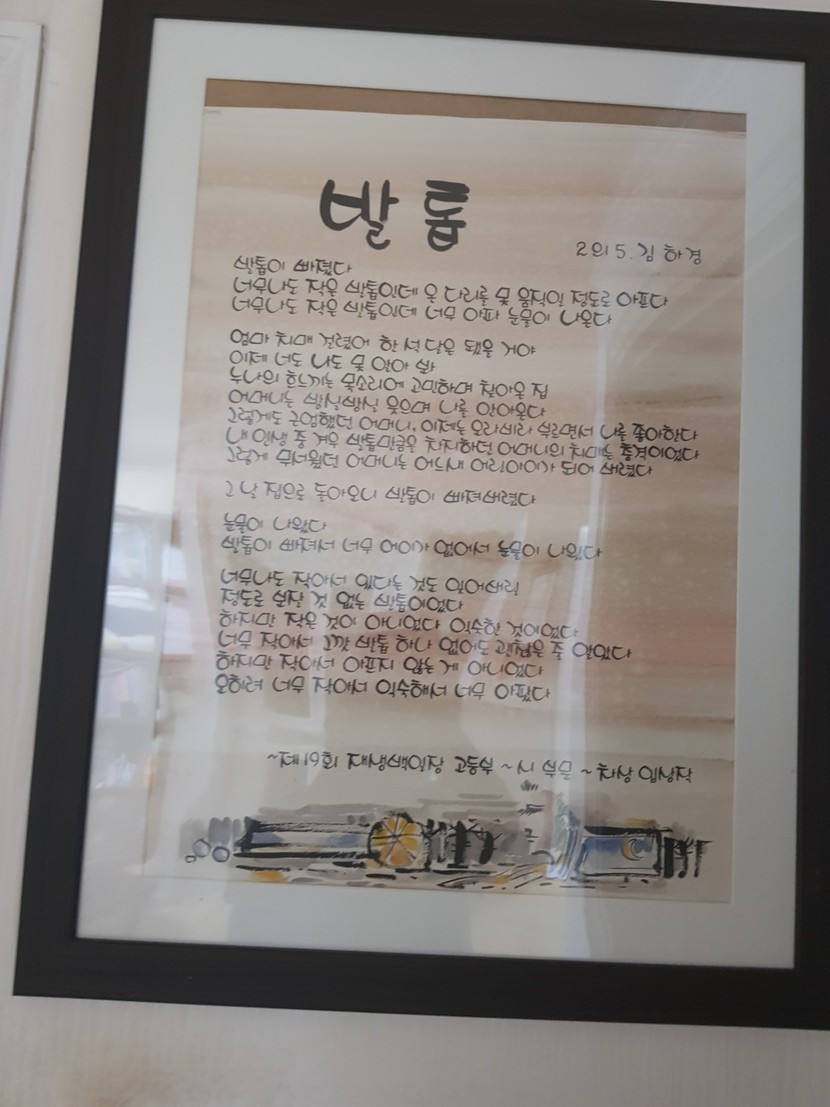 발톱
2의5. 김하경
발톱이 빠졌다
너무나도 작은 발톱인데 온 다리를 못 움직일 정도로 아프다
너무나도 작은 발톱인데 너무 아파 눈물이 나온다
엄마 치매 걸렸어 한 석 달은 됐을 거야
이제 너도 나도 못 알아 봐
누나의 흐느끼는 목소리에 고민하며 찾아온 집
어머니는 방실방실 웃으며 나를 안아온다
그렇게도 근엄했던 어머니, 이제는 오라비라 부르면서 나를 좋아한다
내 인생 중 겨우 발톱만큼을 차지하던 어머니의 치매는 충격이었다
그렇게 무서웠던 어머니는 어느새 어린아이가 되어 버렸다
그 날 집으로 돌아오니 발톱이 빠져버렸다
눈물이 나왔다
발톱이 빠져서 너무 어이가 없어서 눈물이 나왔다
너무나도 작아서 있다는 것도 잊어버릴
정도로 보잘 것 없는 발톱이었다
하지만 작은 것이 아니었다 익숙한 것이었다
너무 작아서 그깟 발톱 하나 없어도 괜찮을 줄 알았다
하지만 작아서 아프지 않는 게 아니었다
오히려 너무 작아서 익숙해서 너무 아팠다
~제19회 재생백일장 고등부 ~시 부문 ~차상 입상작